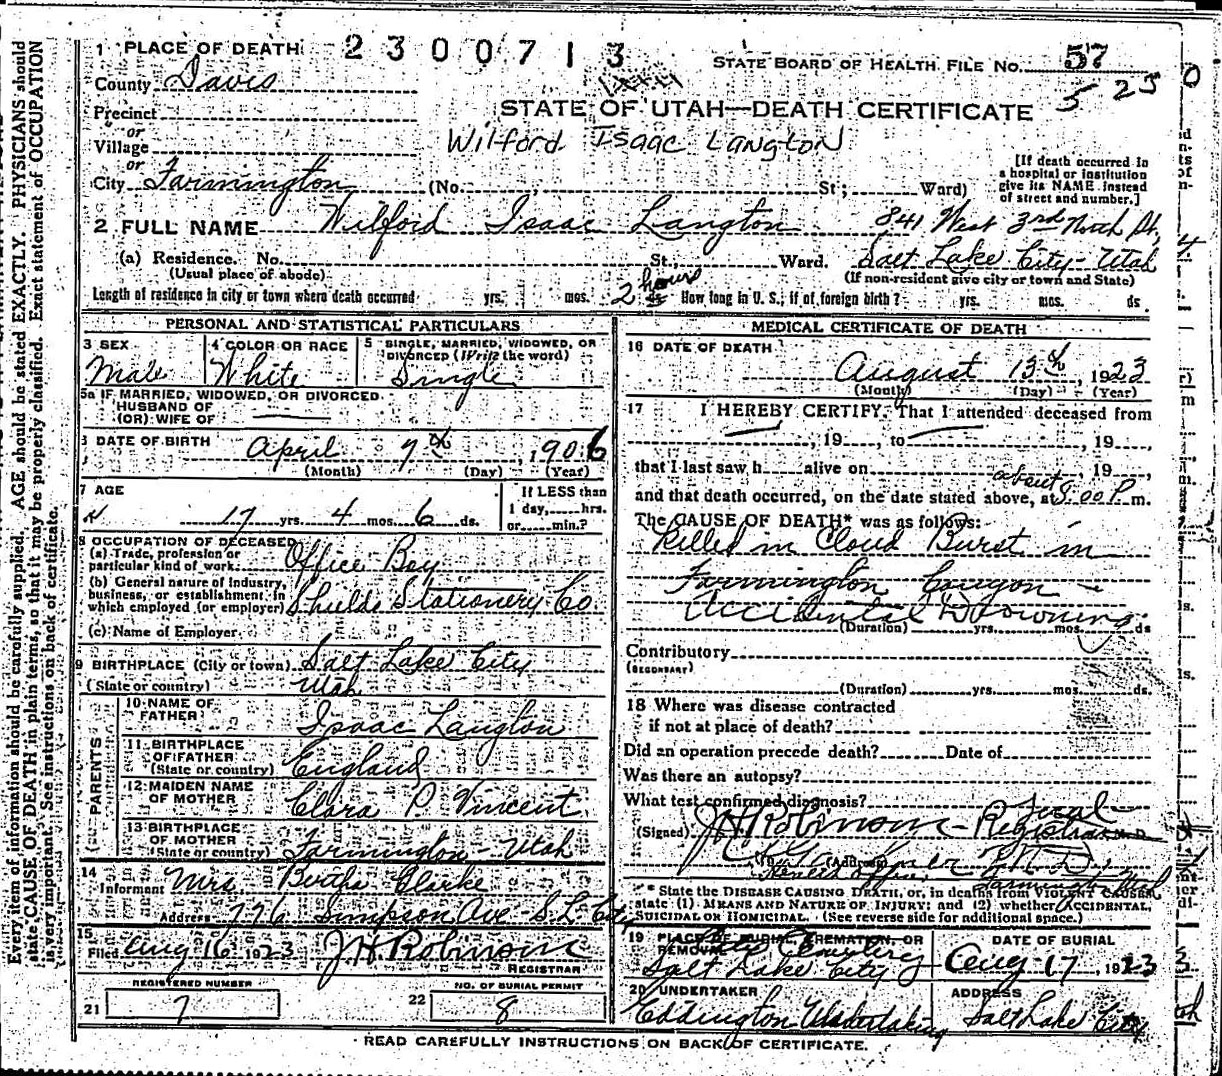 1 PLACE OF DEATH 2300713
STATE BOARD OF HEALTH FILE No. 57
County Davis
5 25 0
Precinct
STATE OF UTAH—DEATH CERTIFICATE
or
Village
Wilford Isaac Langton
or
City Farmington (No. , St; Ward)
[If death occurred in
a hospital or institution
give its NAME instead
of street and number.]
2 FULL NAME Wilford Isaac Langton
841 West 3rd North St,
(a) Residence. No. St., Ward. Salt Lake City - Utah
(Usual place of abode) (If non-resident give city or town and State)
Length of residence in city or town where death occurred yrs. mos. 2 hours ds. How long in U. S., if of foreign birth? yrs. mos. ds
PERSONAL AND STATISTICAL PARTICULARS
3 SEX
Male
4 COLOR OR RACE
White
5 SINGLE, MARRIED, WIDOWED, OR
DIVORCED (Write the word)
Single
5a IF MARRIED, WIDOWED, OR DIVORCED
HUSBAND OF
(OR) WIFE OF
6 DATE OF BIRTH April 7th, 1906
(Month) (Day) (Year)
7 AGE
17 yrs. 4 mos. 6 ds.
If LESS than
1 day, hrs.
or min.?
8 OCCUPATION OF DECEASED
(a) Trade, profession or
particular kind of work Office Boy
(b) General nature of industry,
business, or establishment in
which employed (or employer) Shields Stationery Co
(c) Name of Employer
9 BIRTHPLACE (City or town) Salt Lake City
(State or country) Utah
PARENTS
10 NAME OF
FATHER Isaac Langton
11 BIRTHPLACE
OF FATHER
(State or country) England
12 MAIDEN NAME
OF MOTHER Clara P. Vincent
13 BIRTHPLACE
OF MOTHER
(State or country) Farmington - Utah
14
Informant Mrs. Bertha Clarke
Address 776 Simpson Ave - S.L. City
15
Filed Aug 16 1923 J H Robinson
REGISTRAR
REGISTERED NUMBER
21 7
NO. OF BURIAL PERMIT
22 8
MEDICAL CERTIFICATE OF DEATH
16 DATE OF DEATH
August 13th, 1923
(Month) (Day) (Year)
17 I HEREBY CERTIFY, That I attended deceased from
, 19 , to , 19
that I last saw h alive on , 19
and that death occurred, on the date stated above, at about 8:00 P. m.
The CAUSE OF DEATH* was as follows:
Killed in Cloud Burst in
Farmington Canyon -
Accidental Drowning
(Duration) yrs. mos. ds
Contributory
(SECONDARY)
(Duration) yrs. mos. ds.
18 Where was disease contracted
if not at place of death?
Did an operation precede death? Date of
Was there an autopsy?
What test confirmed diagnosis?
(Signed) J H Robinson - Local Registrar M.D.
(Address)
* State the DISEASE CAUSING DEATH, or, in deaths from VIOLENT CAUSES,
state (1) MEANS AND NATURE OF INJURY; and (2) whether ACCIDENTAL,
SUICIDAL OR HOMICIDAL. (See reverse side for additional space.)
19 PLACE OF BURIAL, CREMATION, OR
REMOVAL City Cemetery
Salt Lake City
DATE OF BURIAL
Aug 17, 1923
20 UNDERTAKER
Eddington Undertaking
ADDRESS
Salt Lake City
READ CAREFULLY INSTRUCTIONS ON BACK OF CERTIFICATE.
Every item of information should be carefully supplied. AGE should be stated EXACTLY. PHYSICIANS should
state CAUSE OF DEATH in plain terms, so that it may be properly classified. Exact statement of OCCUPATION
is very important. See instructions on back of certificate.